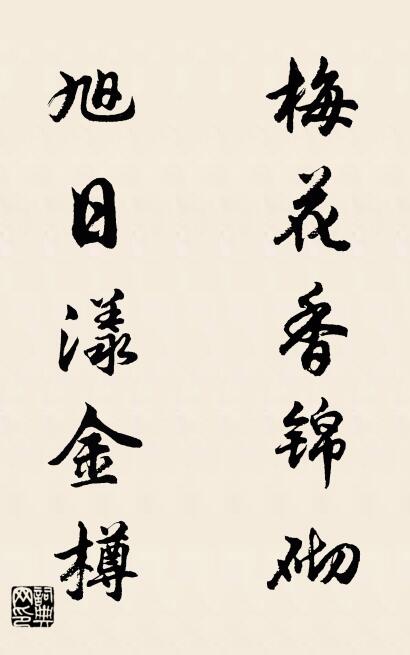 梅花香锦砌
旭日漾金樽
詞典網印